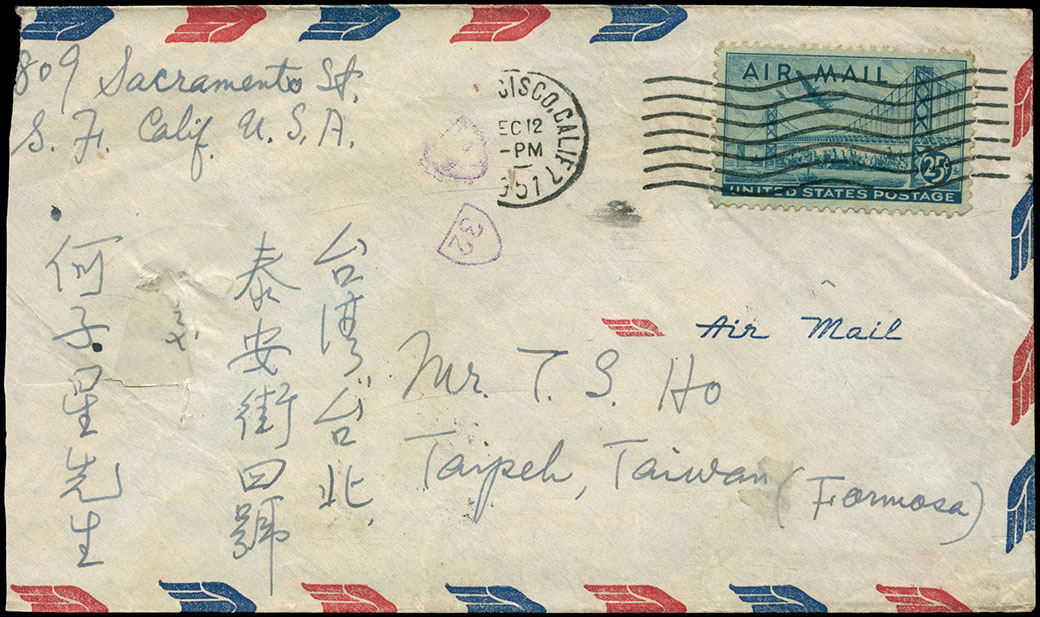 809 Sacramento St.
S. F. Calif. U. S. A.
CISCO, CALIF. 7
EC 12
-PM
951
AIR MAIL
25¢
UNITED STATES POSTAGE
32
Air Mail
Mr. T. S. Ho
Taipeh, Taiwan (Formosa)
台湾台北.
泰安街四號
何子星先生